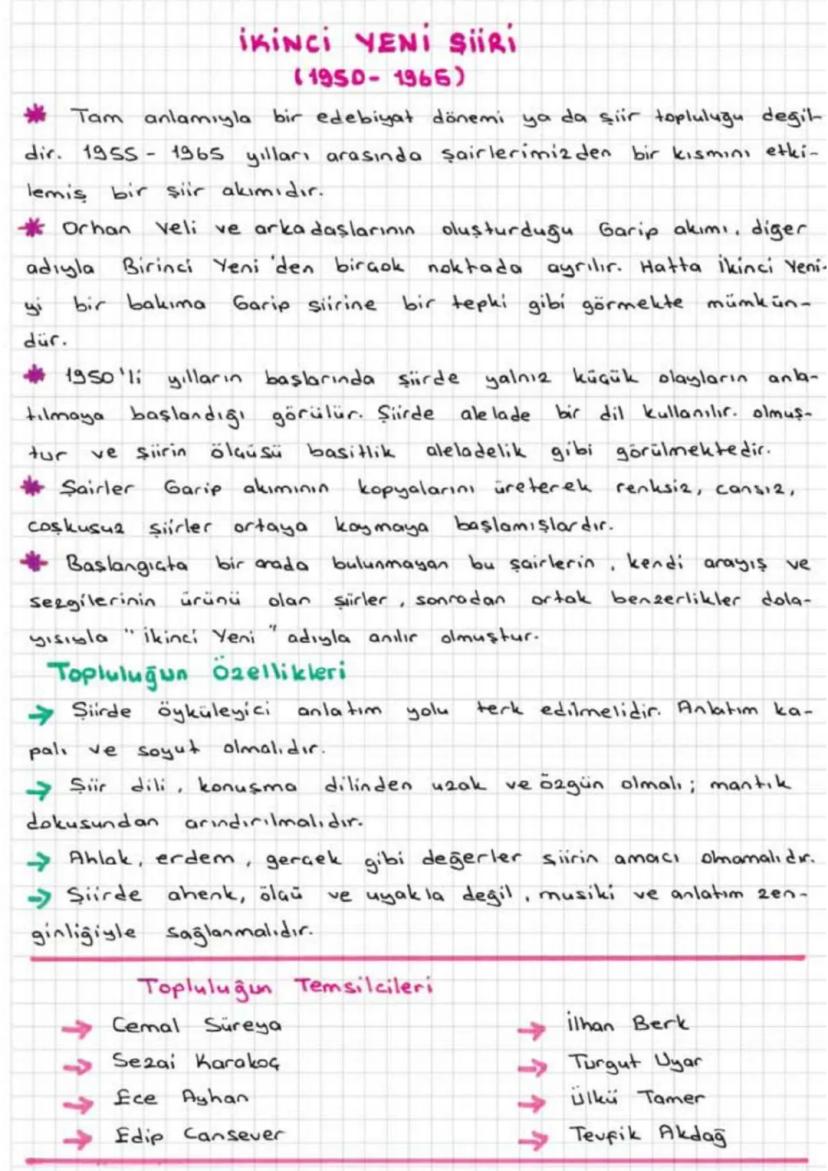 İKİNCİ YENİ ŞİİRİ
(1950-1965)
* Tam anlamıyla bir edebiyat dönemi ya da şiir topluluğu değil-
dir. 1955 - 1965 yılları arasında şairlerimizden bir kısmını etki-
lemiş bir şiir akımıdır.
* Orhan Veli ve arkadaşlarının oluşturduğu Garip akımı, diğer
adıyla Birinci Yeni'den birçok noktada ayrılır. Hatta İkinci Yeni-
yi bir bakıma Garip şiirine bir tepki gibi görmekte mümkün-
dür.
* 1950'li yılların başlarında şiirde yalnız küçük olayların anla-
tılmaya başlandığı görülür. Şiirde alelade bir dil kullanılır. olmuş-
tur ve şiirin ölçüsü basitlik aleladelik gibi görülmektedir.
* Şairler Garip akımının kopyalarını üreterek renksiz, cansız,
coşkusuz şiirler ortaya koymaya başlamışlardır.
* Başlangıçta bir arada bulunmayan bu şairlerin, kendi arayış ve
sezgilerinin ürünü olan şiirler, sonradan ortak benzerlikler dola-
yısıyla "İkinci Yeni" adıyla anılır olmuştur.
Topluluğun Özellikleri
→ Şiirde öyküleyici anlatım yolu terk edilmelidir. Anlatım ka-
palı ve soyut olmalıdır.
→ Şiir dili, konuşma dilinden uzak ve özgün olmalı; mantık
dokusundan arındırılmalıdır.
→ Ahlak, erdem, gerçek gibi değerler şiirin amacı olmamalıdır.
→ Şiirde ahenk, ölçü ve uyakla değil, musiki ve anlatım zen-
ginliğiyle sağlanmalıdır.
Topluluğun Temsilcileri
→ Cemal Süreya
→ Sezai Karakoç
→ Ece Ayhan
→ Edip Cansever
→ İlhan Berk
→ Turgut Uyar
→ Ülkü Tamer
→ Tevfik Akdağ